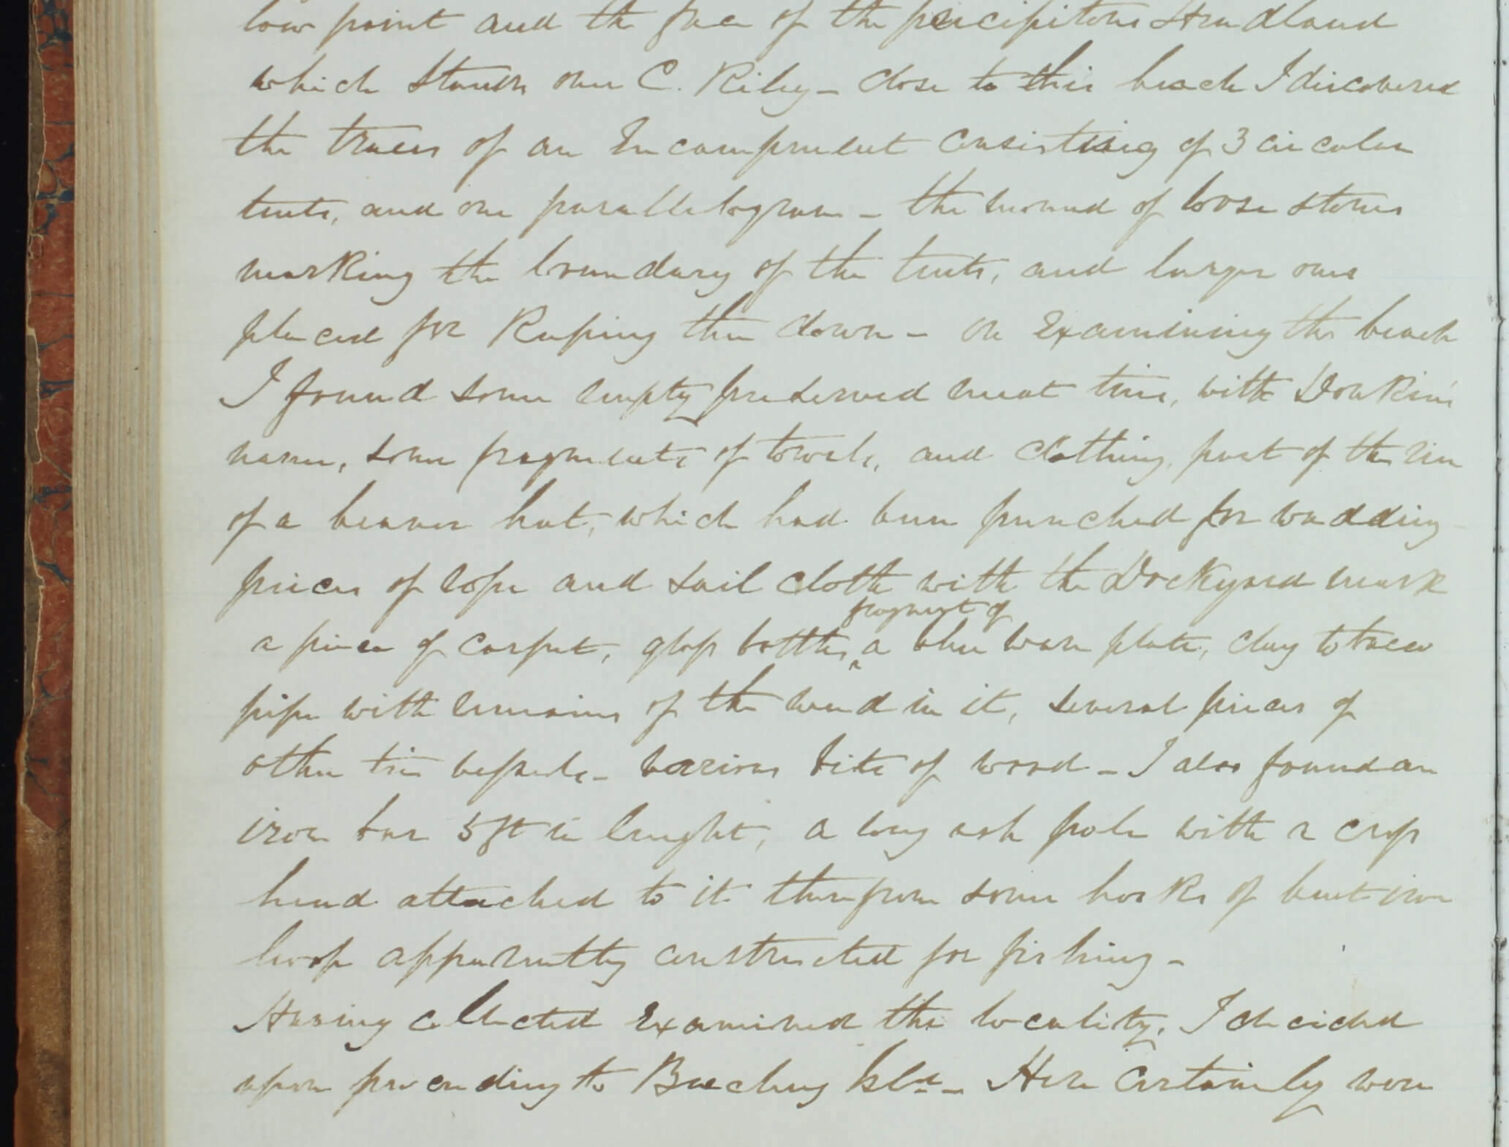 low point and the face of the precipitous Headland
which stands over C. Riley - close to this beach I discovered
the traces of an Encampment consisting of 3 circular
tents, and one parallelogram - the mound of loose stones
marking the boundary of the tents, and larger ones
placed for Keeping them down - on Examining the beach
I found some empty preserved meat tins, with Donkin's
name, some fragments of towels, and clothing, part of the rim
of a beaver hat, which had been punched for wadding
pieces of rope and sail cloth with the Dockyard mark
a piece of carpet, glass bottles, fragment of a blue ware plate, clay tobacco
pipe with remains of the weed in it, several pieces of
other tin vessels - various bits of wood - I also found an
iron bar 5ft in lenght, a long ash pole with a cross
head attached to it some hooks of bent iron
hoop apparently constructed for fishing -
Having collected Examined the locality, I decided
upon proceeding to Beechey Isld - Here certainly were